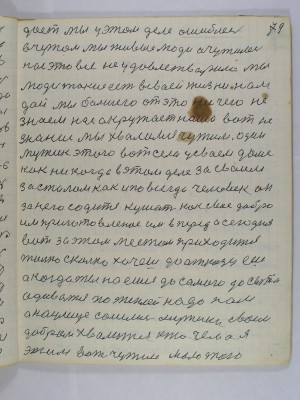 79
дает мы у этом деле ошиблись
в чужом мы живые люди очутились
нас это все не удовлетворило мы
люди такие есть в своей жизни нам
дай мы большего от это ничего не
знаем нас окружает наша вот не
знание мы хвалили чужим. один
мужик этого вот села у своем доме
как никогда в этом деле за своим
за столом как и то всегда человек он
за него садится кушать как свое добро
им приготовленое им вперед а сегодня
вот за этом местом приходится
только сколько хочеш до отказу еш
а когда ты наешся до самого до сыта
одевайся по теплей надо нам
а на улице соседи мужики своим
добром хвалются кто чем а я
этим вот чужим мало того